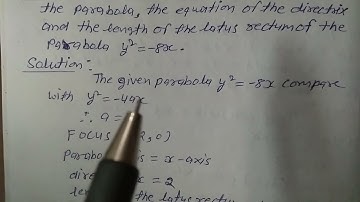 the parabola, the equation of the directrix
and the length of the latus rectum of the
Parabola y² = -8x.
Solution:-
The given parabola y² = -8x compare
with y² = -4ax
∴ a =
FOCUS 2, 0)
Parabo is = x-axis
dire x = 2
le the latus rectu